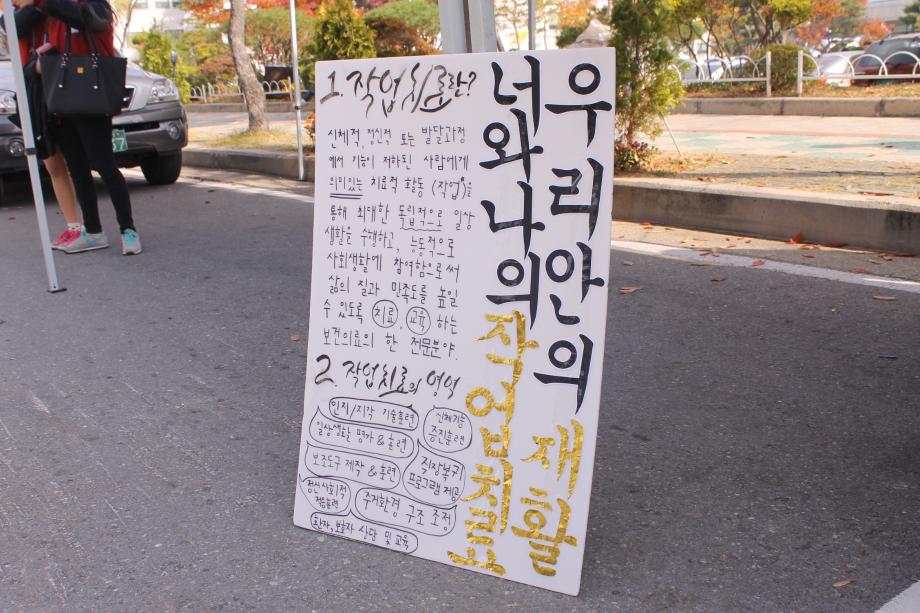 1. 작업치료란?
신체적, 정신적 또는 발달과정
에서 기능이 저하된 사람에게
의미있는 치료적 활동 (작업)을
통해 최대한 독립적으로 일상
생활을 수행하고, 능동적으로
사회생활에 참여함으로써
삶의 질과 만족도를 높일
수 있도록 치료, 교육 하는
보건의료의 한 전문분야.
2. 작업치료의 영역
인지/지각 기술훈련
신체기능
증진훈련
일상생활 평가 & 훈련
보조도구 제작 & 훈련
직장복귀
프로그램 제공
정신사회적
적응훈련
주거환경 구조 조정
환자, 보호자 상담 및 교육
우리안의 재활
너와 나의 작업치료
7